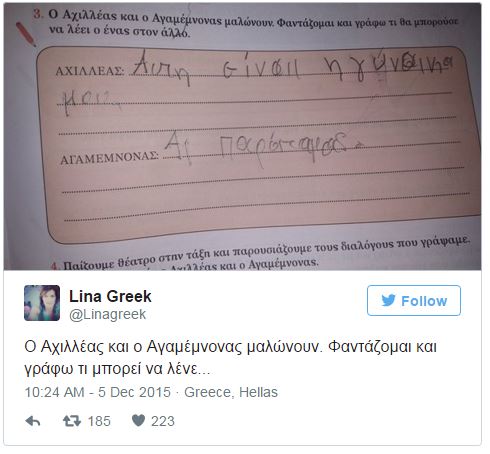 3. Ο Αχιλλέας και ο Αγαμέμνονας μαλώνουν. Φαντάζομαι και γράφω τι θα μπορούσε
να λέει ο ένας στον άλλο.
ΑΧΙΛΛΕΑΣ: Αυτη είναι η γυναικα
μου.
ΑΓΑΜΕΜΝΟΝΑΣ: Αι
4. Παίζουμε θέατρο στην τάξη και παρουσιάζουμε τους διαλόγους που γράψαμε.
Αχιλλέας και ο Αγαμέμνονας.
Lina Greek
@Linagreek
Follow
Ο Αχιλλέας και ο Αγαμέμνονας μαλώνουν. Φαντάζομαι και
γράφω τι μπορεί να λένε...
10:24 AM - 5 Dec 2015 · Greece, Hellas
185 223